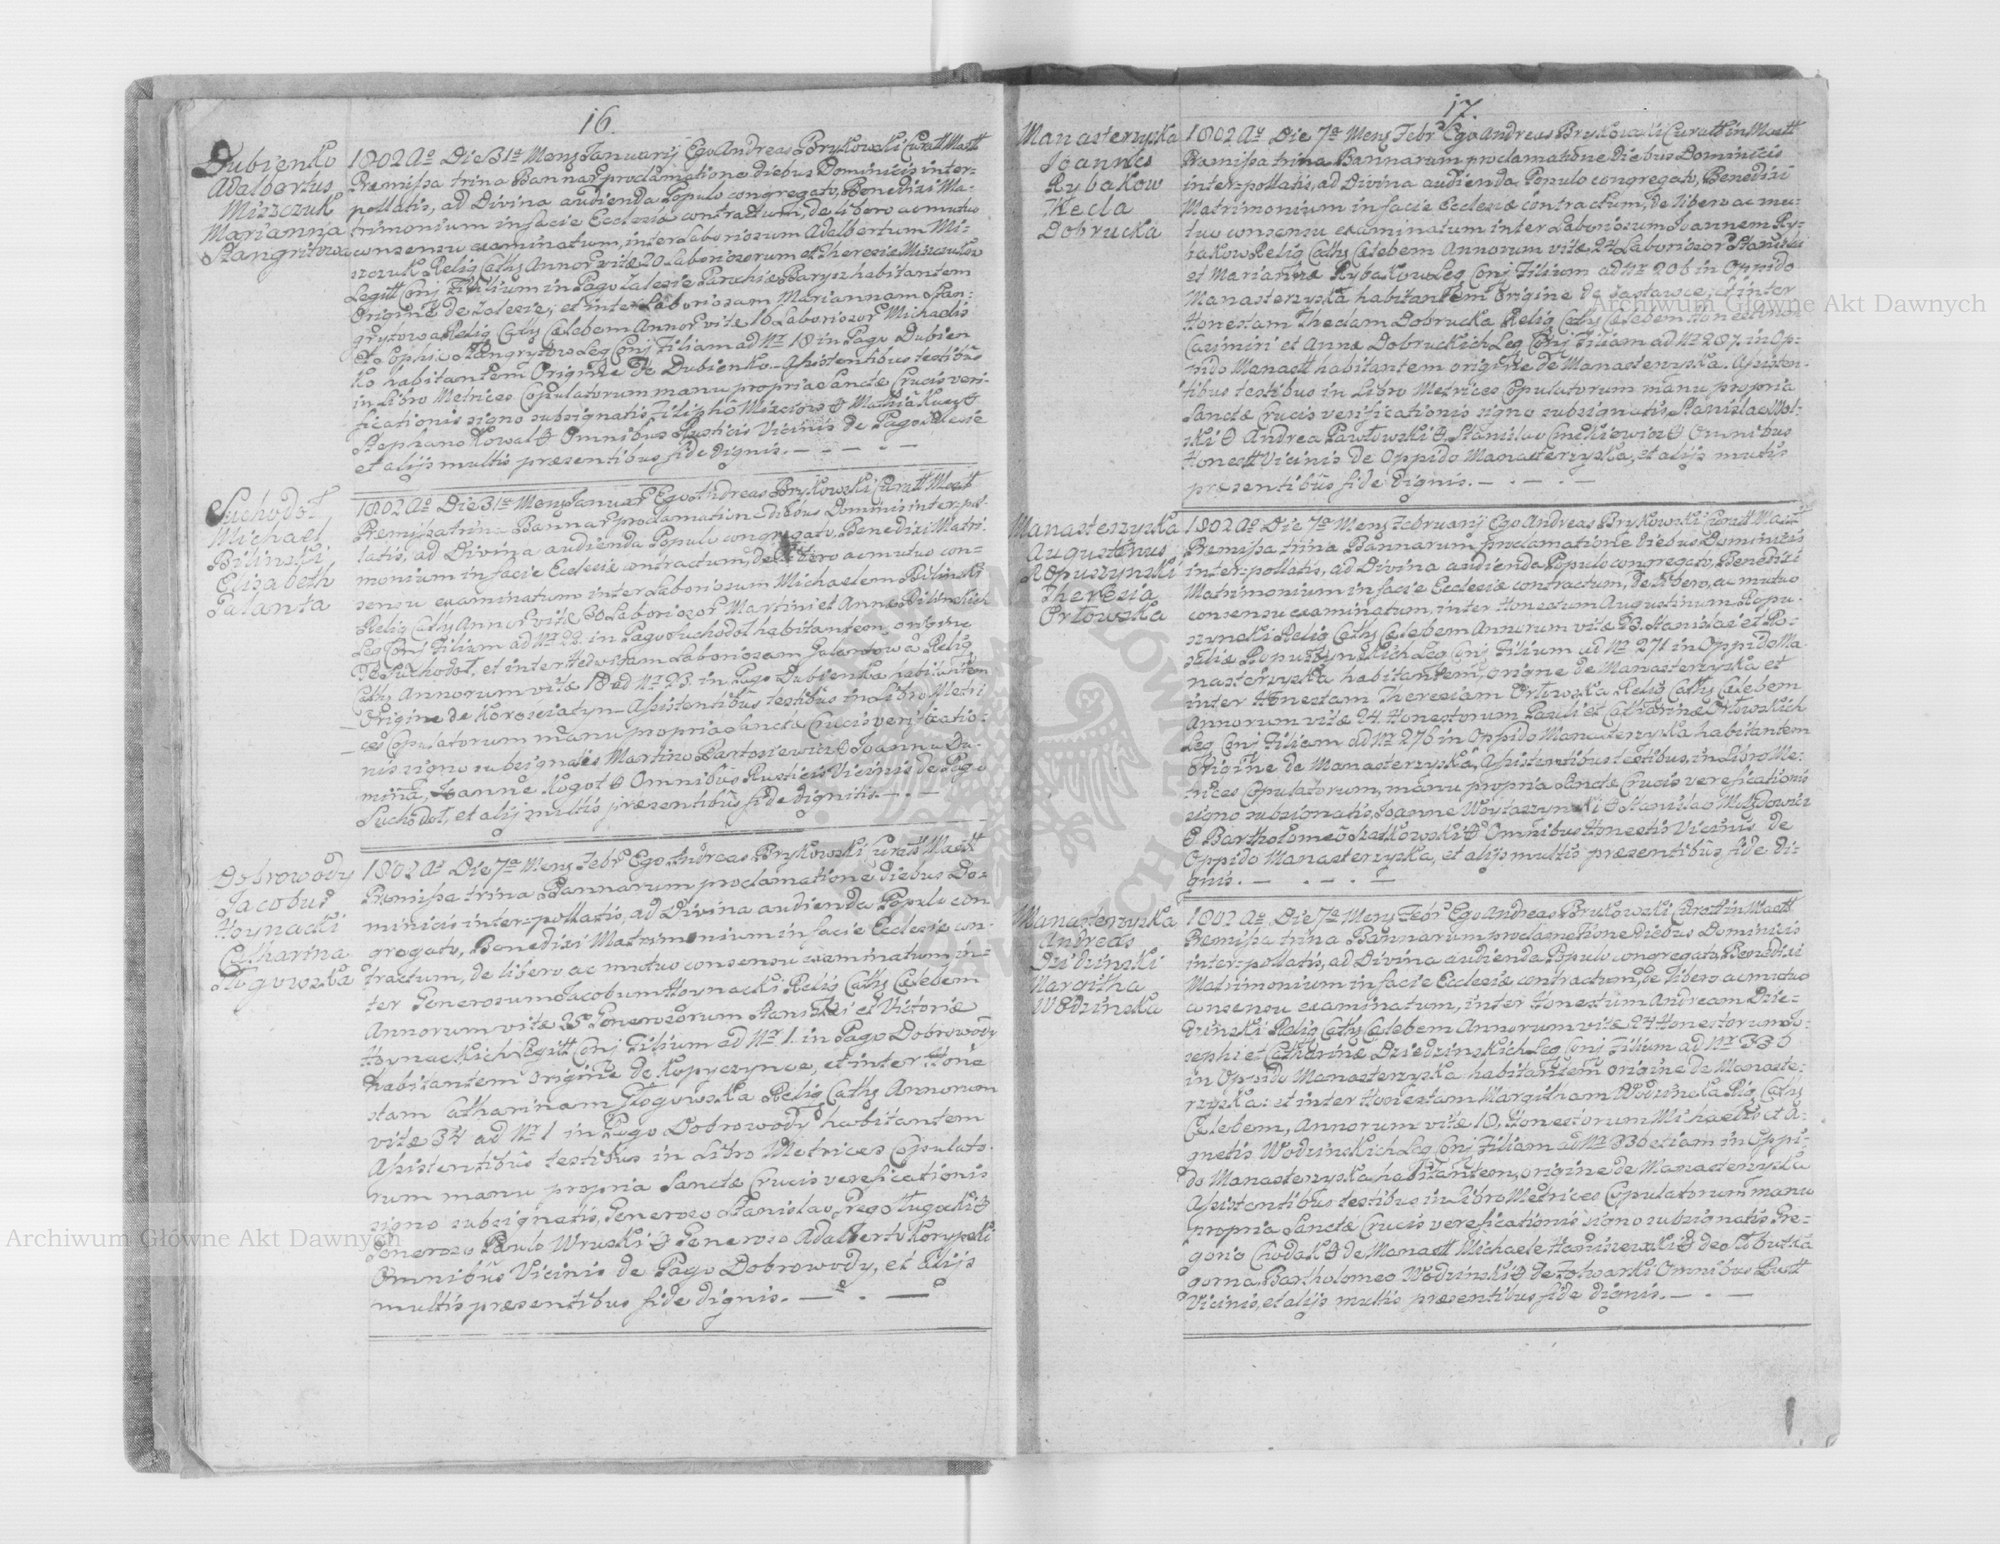 16.
Dubienko
Adalbertus
Miszczuk
Marianna
Stangritowa
1802 Ao Die 31a Mens Januarij Ego Andreas Brykowski Curatt Mastt
Præmissa trina Bannar proclamatione diebus Dominicis inter-
pollatis, ad Divina audienda Populo congregato, Benedixi Ma-
trimonium in facie Ecclesiæ contractum, de libero ac mutuo
consensu examinatum, inter Laboriosum Adalbertum Mi-
szczuk Relig Cath Annor vitæ 20 Laboriosorum et Theresiæ Miszczuków
Legitt Conj Filium in Pago Zalesie Parochiæ Barysz habitantem
Origine de Zalesie; et inter Laboriosam Mariannam Stan-
grytowa Relig Cath Cælebem Annor vitæ 16 Laboriosor Michaelis
et Sophiæ Stangrytow Leg Conj Filiam ad Nr 18 in Pago Dubien
ko habitantem Origine de Dubienko. Assistentibus testibus
in Libro Metrices Copulatorum manu propria Sanctæ Crucis veri-
ficationis signo subsignatis Filipho
Stephano Kowal & Omnibus Rusticis Vicinis de Pago Zalesie
et alijs multis præsentibus fide dignis. — — —
Suchodoł
Michael
Biliński
Elisabeth
Galanta
1802 Ao Die 31a Mens Januar Ego Andreas Brykowski Curatt Mastt
Præmissa trina Bannar proclamatione diebus Dominis interpol-
latis, ad Divina audienda Populo congregato, Benedixi Matri-
monium in facie Ecclesiæ contractum, de libero ac mutuo con-
sensu examinatum inter Laboriosum Michaelem Biliński
Relig Cath Annor vitæ 30 Laboriosor Martini et Annæ Bilinskich
Leg Conj Filium ad Nr 22. in Pago Suchodoł habitantem, origine
de Suchodoł, et inter Hedvitam Laboriosam Galantowa Relig
Cath, Annorum vitæ 18 ad Nr 23. in Pago Dubienka habitantem
Origine de Korosciatyn — Assistentibus testibus in Libro Metri
ces Copulatorum manu propria Sanctæ Crucis verificatio-
nis signo subsignatis Martino Bartosiewicz & Joanne Du-
mina, Joanne Rogot & Omnibus Rusticis Vicinis de Pago
Suchodoł, et alijs multis præsentibus fide dignitis. — . —
Dobrowody
Jacobus
Hoynacki
Catharina
Głogowska
1802 Ao Die 7a Mens Febr Ego Andreas Brykowski Curatt Mastt
Præmissa trina Bannarum proclamatione diebus Do-
minicis inter-pollatis, ad Divina audienda Populo con
gregato, Benedixi Matrimonium in facie Ecclesiæ con-
tractum, de libero ac mutuo consensu examinatum in-
ter Generosum Jacobum Hoynacki Relig Cath Cælebem
Annorum vitæ 25 Generosorum Stanislai et Victoriæ
Hoynackich Legitt Conj Filium ad Nr 1. in Pago Dobrowody
habitantem origine de Kopyczynce, et inter Hone
stam Catharinam Głogowska Relig Cath Annorum
vitæ 34 ad Nr 1 in Pago Dobrowody habitantem
Assistentibus testibus in Libro Metrices Copulato-
rum manu propria Sanctæ Crucis verefìcationis
signo subsignatis, Generoso Stanislao &
Generoso Paulo Wruski & Generoso Adalberto Korypski
Omnibus Vicinis de Pago Dobrowody, et Alijs
multis præsentibus fide dignis. — . —
17.
Manasterzyska
Joannes
Rybakow
Thecla
Dobrucka
1802 Ao Die 7a Mens Febr Ego Andreas Brykowski Curatt in Mastt
Præmissa trina Bannarum proclamatione diebus Dominicis
inter-pollatis, ad Divina audienda Populo congregato, Benedixi
Matrimonium in facie Ecclesiæ contractum, de libero ac mu-
tuo consensu examinatum inter Laboriosum Joannem Ry-
bakow Relig Cath Cælebem Annorum vitæ 24 Laboriosor Stanislai
et Mariannæ Rybakow Leg Conj Filium ad Nr 206 in Oppido
Manasterzyska habitantem Origine de Jastowce; et inter
Honestam Theclam Dobrucka Relig Cath Cælebem Honestorum
Casimiri et Annæ Dobruckich Leg Conj Filiam ad Nr 207. in Op-
pido Manastt habitantem origine de Manasterzyska. Assisten-
tibus testibus in Libro Metrices Copulatorum manu propria
Sanctæ Crucis verificationis signo subsignatis, Stanislao Wol-
ski & Andrea Pawłowski & Stanislao & Omnibus
Honestt Vicinis de Oppido Manasterzyska, et alijs mutis
præsentibus fide dignis. — . — . —
Manasterzyska
Augustinus
Ropuszynski
Theresia
Orłowska
1802 Ao Die 7a Mens Februarij Ego Andreas Brykowski Curatt Mastt
Præmissa trina Bannarum proclamatione diebus Dominicis
inter-pollatis, ad Divina audienda Populo congregato, Benedixi
Matrimonium in facie Ecclesiæ contractum, de libero, ac mutuo
consensu examinatum, inter Honestum Augustinum Ropu-
szynski Relig Cath Cælebem Annorum vitæ 23. Stanislai et Ro-
saliæ Ropuszynskich Leg Conj Filium ad Nr 271 in Oppido Ma
nasterzyska habitantem, origine de Manasterzyska et
inter Honestam Theresiam Orłowska Relig Cath Cælebem
Annorum vitæ 24. Honestorum Pauli et Catharinæ Orłowskich
Leg Conj Filiam ad Nr 276 in Oppido Manasterzyska habitantem
Origine de Manasterzyska, Assistentibus testibus, in Libro Me-
trices Copulatorum, manu propria Sanctæ Crucis verefìcationis
signo subsignatis, Joanne & Stanislao
& Bartholomeo & Omnibus Honestis Vicinis de
Oppido Manasterzyska, et alijs multis præsentibus, fide di-
gnis. — . — . —
Manasterzyska
Andreas
Dziedzinski
Margitha
Wodzinska
1802 Ao Die 7a Mens Febr Ego Andreas Brykowski Curatt in Mastt
Præmissa trina Bannarum proclamatione diebus Dominicis
inter-pollatis, ad Divina audienda Populo congregato, Benedixi
Matrimonium in facie Ecclesiæ contractum, de libero ac mutuo
consensu examinatum, inter Honestum Andream Dzie-
dzinski Relig Cath Cælebem Annorum vitæ 24 Honestorum Jo-
sephi et Catharinæ Dziedzinskich Leg Conj Filium ad Nr 330
in Oppido Manasterzyska habitantem origine de Manaste-
rzyska: et inter Honestam Margitham Wodzinska Relig Cath
Cælebem, Annorum vitæ 18, Honestorum Michaelis et A-
gnetis Wodzinskich Leg Conj Filiam ad Nr 336 etiam in Oppi-
do Manasterzyska habitantem, origine de Manasterzyska
Assistentibus testibus in Libro Metrices Copulatorum manu
propria Sanctæ Crucis verefìcationis signo subsignatis Gre-
gorio Chodak & de Manastt Michaele & de Słobutka
gorna, Bartholomeo Wodzinski & de Folwarki Omnibus Rustt
Vicinis, et alijs multis præsentibus fide dignis. — . —
Archiwum Główne Akt Dawnych
Archiwum Główne Akt Dawnych